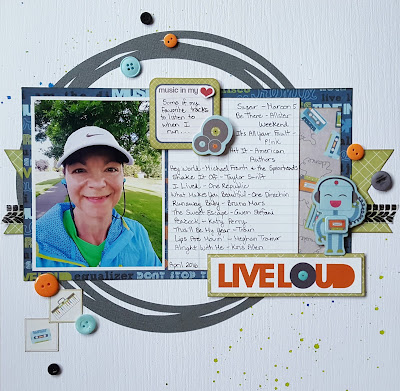 MUSIC
DISCO
live l
music in my
Some of my
favorite tracks
to listen to
when I
run...
Sugar - Maroon 5
Be There - Allstar
Weekend
It's All Your Fault -
Pink
Hit It - American
Authors
Hey World - Michael Franti & the Spearheads
Shake It Off - Taylor Swift
I Lived - One Republic
What Makes You Beautiful - One Direction
Runaway Baby - Bruno Mars
The Sweet Escape - Gwen Stefani
Peacock - Katy Perry
This'll Be My Year - Train
Lips Are Movin - Meghan Trainor
Alright With Me - Kris Allen
April 2016
equalizer DON'T STOP T
LIVE LOUD